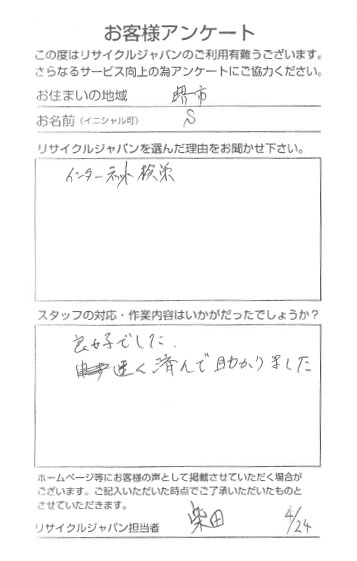 お客様アンケート
この度はリサイクルジャパンのご利用有難うございます。
さらなるサービス向上の為アンケートにご協力ください。
お住まいの地域 堺市
お名前(イニシャル可) S
リサイクルジャパンを選んだ理由をお聞かせ下さい。
インターネット検索
スタッフの対応・作業内容はいかがだったでしょうか?
良好でした.
速く済んで助かりました
ホームページ等にお客様の声として掲載させていただく場合が
ございます。ご記入いただいた時点でご了承いただいたものと
させていただきます。
リサイクルジャパン担当者 柴田 4/24